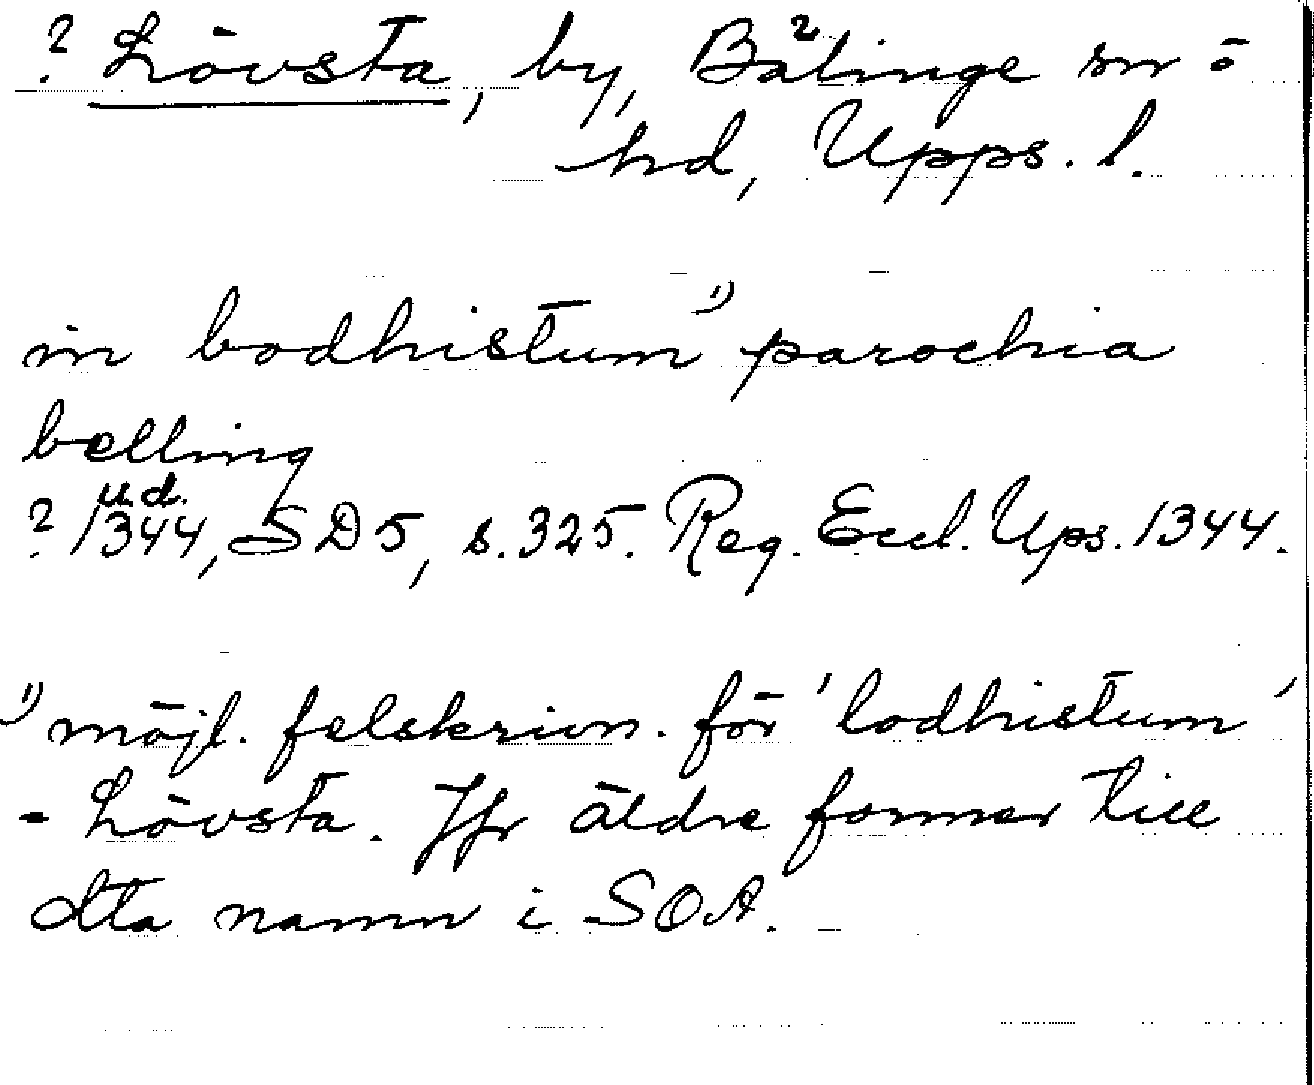 ? Lövsta, by, Bälinge sn o
hd, Upps. l.
in bodhistum 1) parochia
bælling
u.d.
? 1344, SD 5, s. 325. Reg. Eccl. Ups. 1344.
1) möjl. felskrivn. för 'lodhistum'
- Lövsta. Jfr äldre former till
dtta namn i SOA.